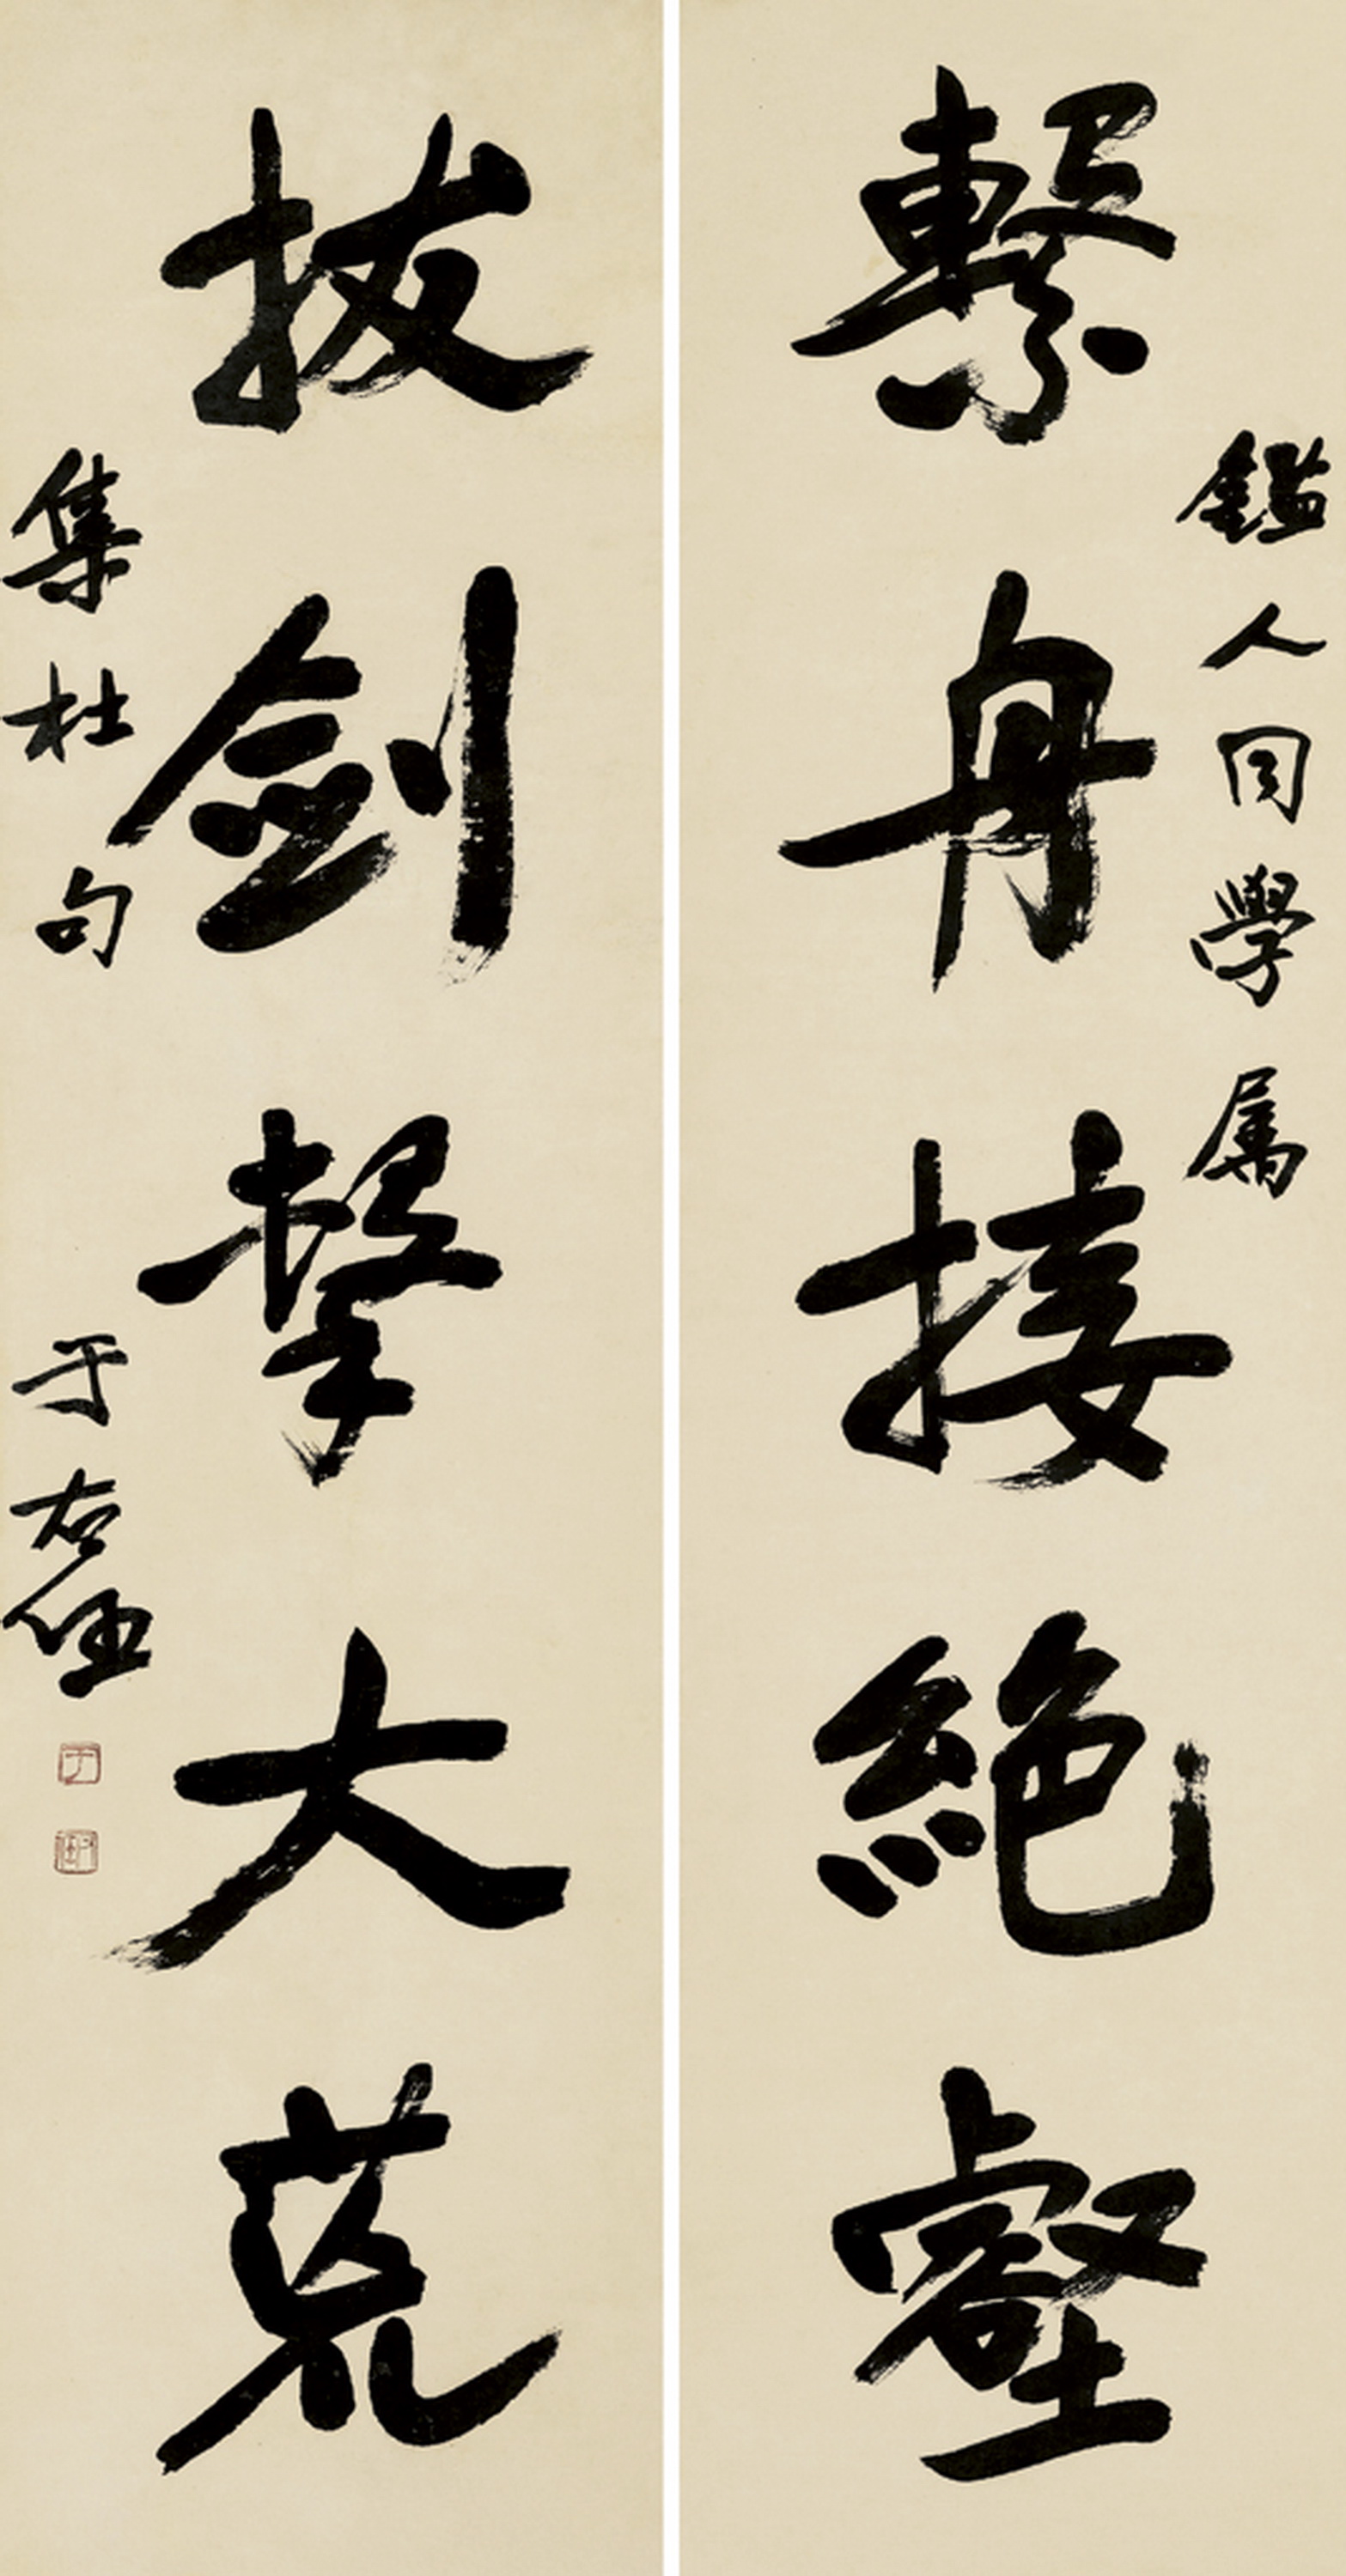 鑑人同學屬
繫舟接絕壑
拔劍擊大荒
集杜句 于右任
于
右任